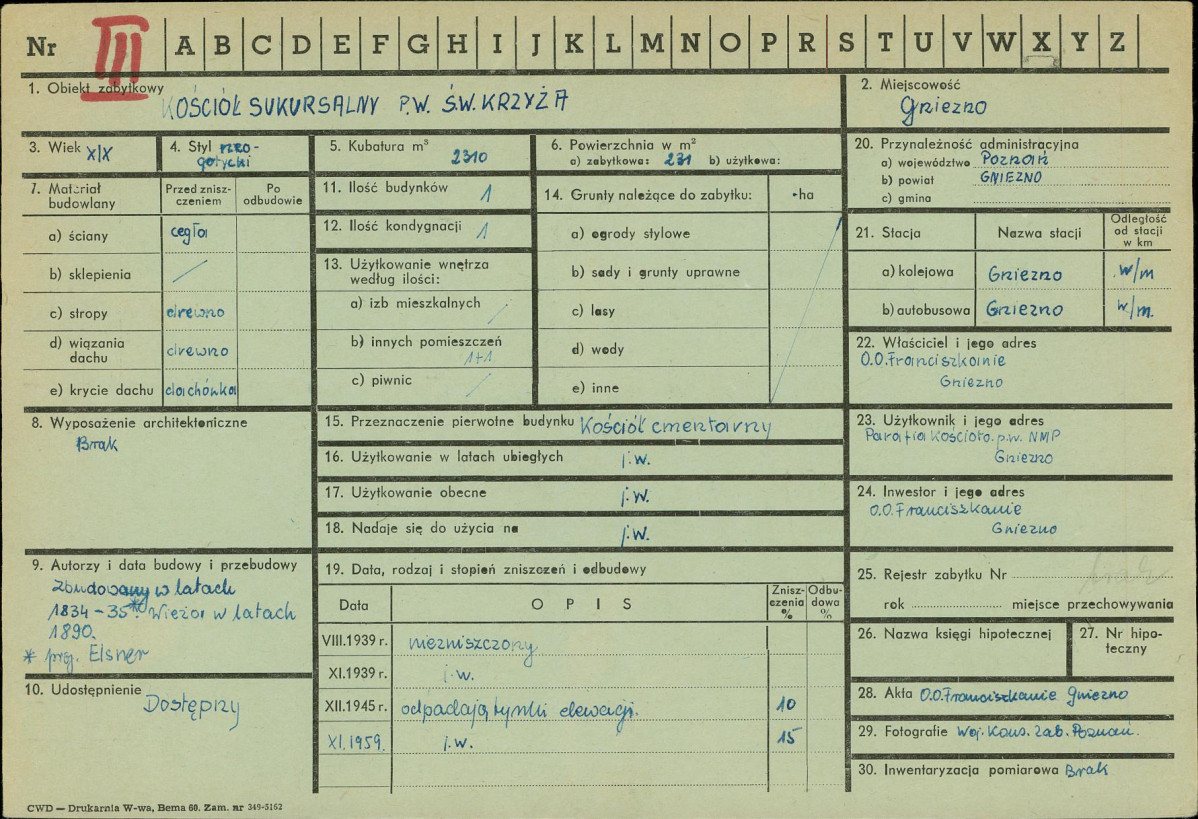 Nr III A B C D E F G H I J K L M N O P R S T U V W X Y Z
1. Obiekt zabytkowy
KOŚCIÓŁ SUKURSALNY P.W. ŚW. KRZYŻA
2. Miejscowość
Gniezno
3. Wiek XIX
4. Styl neo-
gotycki
5. Kubatura m³
2310
6. Powierzchnia w m²
a) zabytkowa: 231 b) użytkowa:
20. Przynależność administracyjna
a) województwo Poznań
b) powiat GNIEZNO
c) gmina
7. Materiał
budowlany
Przed znisz-
czeniem
Po
odbudowie
a) ściany cegła
b) sklepienia /
c) stropy drewno
d) wiązania
dachu drewno
e) krycie dachu dachówka
11. Ilość budynków 1
12. Ilość kondygnacji 1
13. Użytkowanie wnętrza
według ilości:
a) izb mieszkalnych /
b) innych pomieszczeń
1+1
c) piwnic /
14. Grunty należące do zabytku: ha
a) ogrody stylowe
b) sady i grunty uprawne
c) lasy
d) wody
e) inne
21. Stacja
Nazwa stacji
Odległość
od stacji
w km
a) kolejowa Gniezno w/m
b) autobusowa Gniezno w/m.
22. Właściciel i jego adres
O.O. Franciszkanie
Gniezno
8. Wyposażenie architektoniczne
Brak
15. Przeznaczenie pierwotne budynku Kościół cmentarny
16. Użytkowanie w latach ubiegłych j.w.
17. Użytkowanie obecne j.w.
18. Nadaje się do użycia na j.w.
23. Użytkownik i jego adres
Parafia Kościoła p.w. NMP
Gniezno
24. Inwestor i jego adres
O.O. Franciszkanie
Gniezno
9. Autorzy i data budowy i przebudowy
Zbudowany w latach
1834-35*. Wieża w latach
1890.
* proj. Elsner
10. Udostępnienie
Dostępny
19. Data, rodzaj i stopień zniszczeń i odbudowy
Data
OPIS
Znisz-
czenia
%
Odbu-
dowa
%
VIII.1939 r. niezniszczony
XI.1939 r. j.w.
XII.1945 r. odpadają tynki elewacji. 10
XI.1959. j.w. 15
25. Rejestr zabytku Nr brak
rok miejsce przechowywania
26. Nazwa księgi hipotecznej
27. Nr hipo-
teczny
28. Akta O.O. Franciszkanie Gniezno
29. Fotografie Woj. Kons. Zab. Poznań.
30. Inwentaryzacja pomiarowa Brak
CWD — Drukarnia W-wa, Bema 60. Zam. nr 349-5162